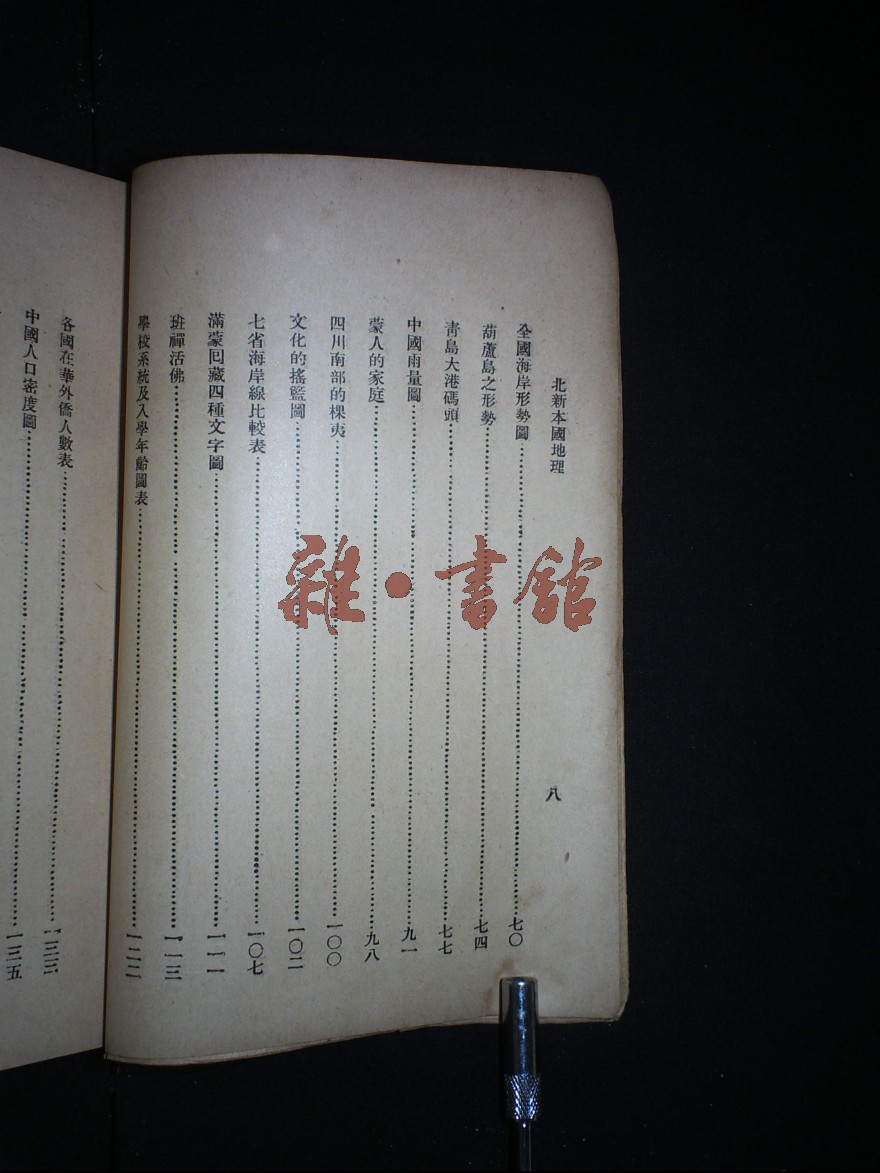 北新本國地理
八
全國海岸形勢圖……七〇
葫蘆島之形勢……七四
靑島大港碼頭……七七
中國雨量圖……九一
蒙人的家庭……九八
四川南部的棵夷……一〇〇
文化的搖籃圖……一〇二
七省海岸線比較表……一〇七
滿蒙回藏四種文字圖……一一一
班禪活佛……一一三
學校系統及入學年齡圖表……一二二
各國在華外僑人數表……一三三
中國人口密度圖……一三五
雜·書館